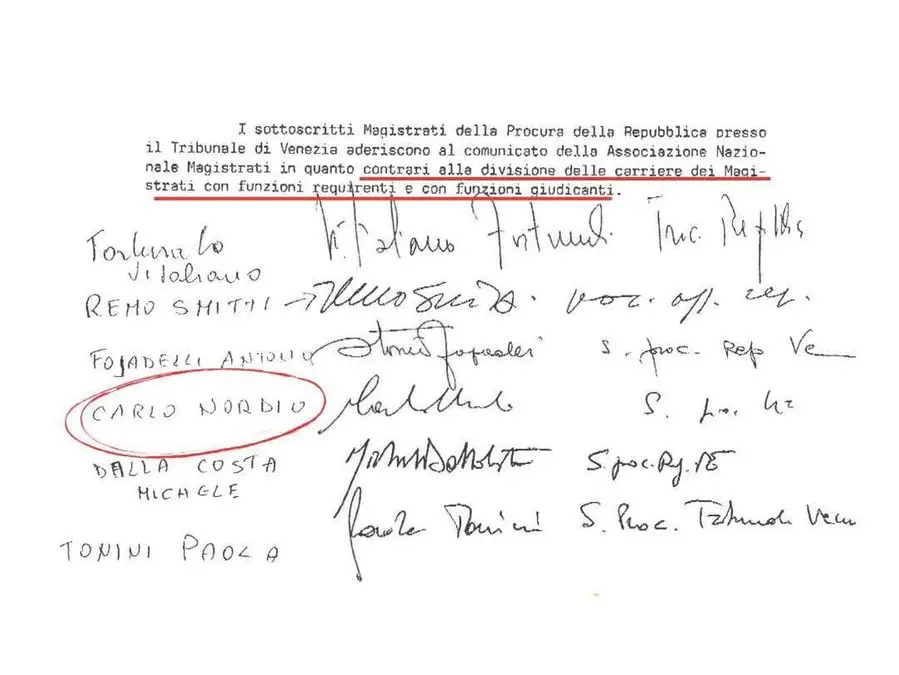 I sottoscritti Magistrati della Procura della Repubblica presso
il Tribunale di Venezia aderiscono al comunicato della Associazione Nazio-
nale Magistrati in quanto contrari alla divisione delle carriere dei Magi-
strati con funzioni requirenti e con funzioni giudicanti.
Fortunato
Vitaliano Vitaliano Fortunato Proc.
REMO SMITTI
FOJADELLI ANTONIO S. proc. Rep Ve
CARLO NORDIO S.
DALLA COSTA
MICHELE S. proc. Rep. VE
TONINI PAOLA Paola Tonini S. Proc.